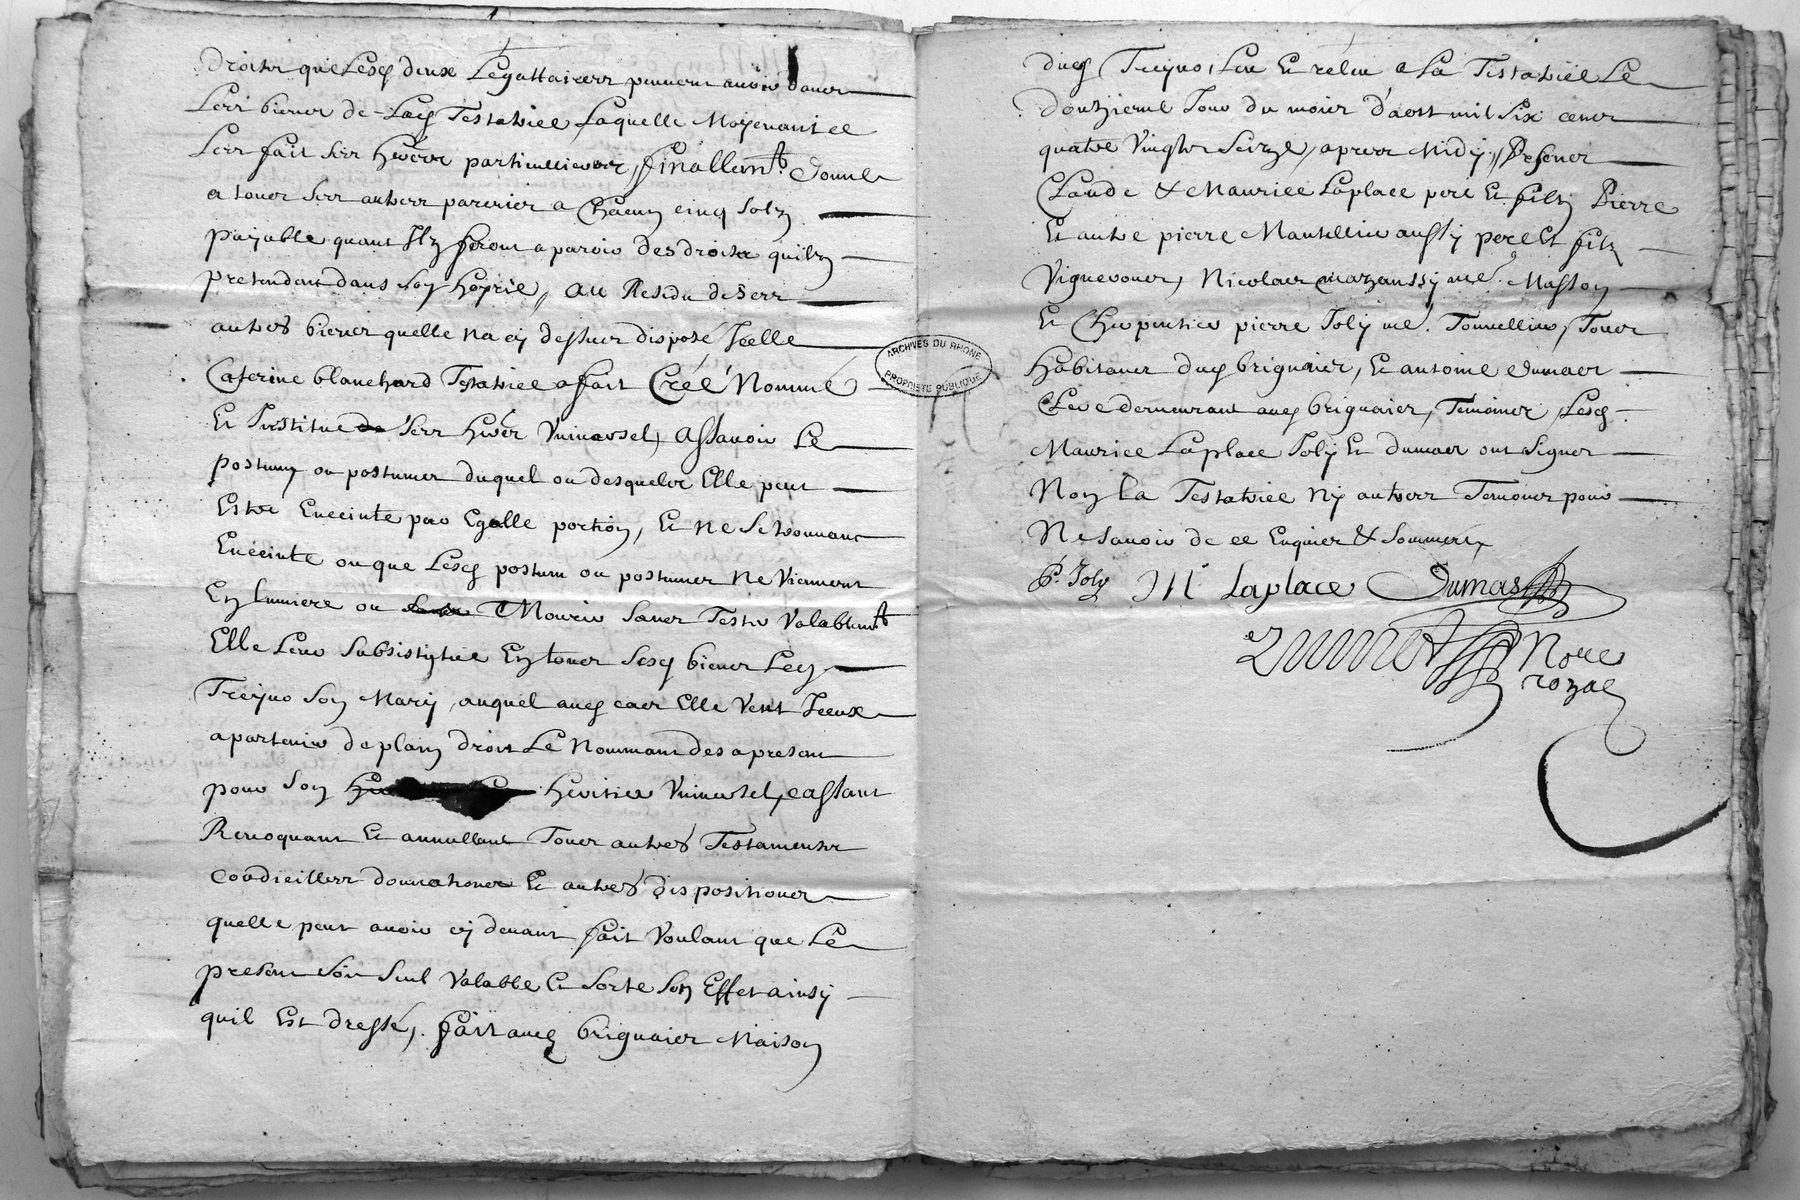 droitz que Lesd deux Legattaires peuvent avoir danes
Les bienes de Lad Testatrice Laquelle Moyenant ce
Les fait ses hoers particullieres, finallemt donne
a toues ses autres parenier a Chacun cinq solz
payable quant Ilz feront aparoir des droitz quilz
pretendent dans son hoyrie, au Residu de ses
autres bienes quelle na cy dessues disposé Icelle
Caterine blanchard Testatrice a fait Créé Nommé
Et Institue ses hoer Vniversel, assavoir Le
postum ou postumes duquel ou desqueles Elle peut
Estre Enceinte par Egalle portion, Et ne se trouvant
Enceinte ou que Lesd postum ou postumes ne Viennent
En Lumiere ou Mourir sanes Tester Valablemt
Elle Leur subsistitue En toues sesd bienes Led
Treyno son Mary, auquel aud caes Elle Veut Iceux
apartenir de plain droit Le Nommant des apresent
pour son heritier Vniversel, cassant
Revoquant Et annullant Toues autres Testamentz
Codicilles donnationes Et autres dispositiones
quelle peut avoir cy devant fait Voulant que Le
present soit seul Valable Et sorte son Effet ainsy
quil Est dressé, fait aud brignaies Maison
dud Treyno, Leu Et releu a La Testatrice Le
douzieme Jour du mois d'aost mil six cenes
quatre Vingtz seize, apres Midy, Presenes
Claude & Maurice Laplace pere Et filz Pierre
Et autre pierre Mantellier aussy pere Et filz
Vignerones, Nicolaes mazanssy me Masson
Et Charpentier pierre Joly me Tonnellier, Toues
habitanes dud brignaies, Et antoine dumaes
Clerc demeurant aud brignaies, Temoines Lesd
Maurice Laplace Joly Et dumaes ont signes
Non la Testatrice Ny autres Temoines pour
Ne savoir de ce Enquies & sommés
P. Joly M Laplace Dumas
Nore
royal
ARCHIVES DU RHONE
PROPRIETE PUBLIQUE